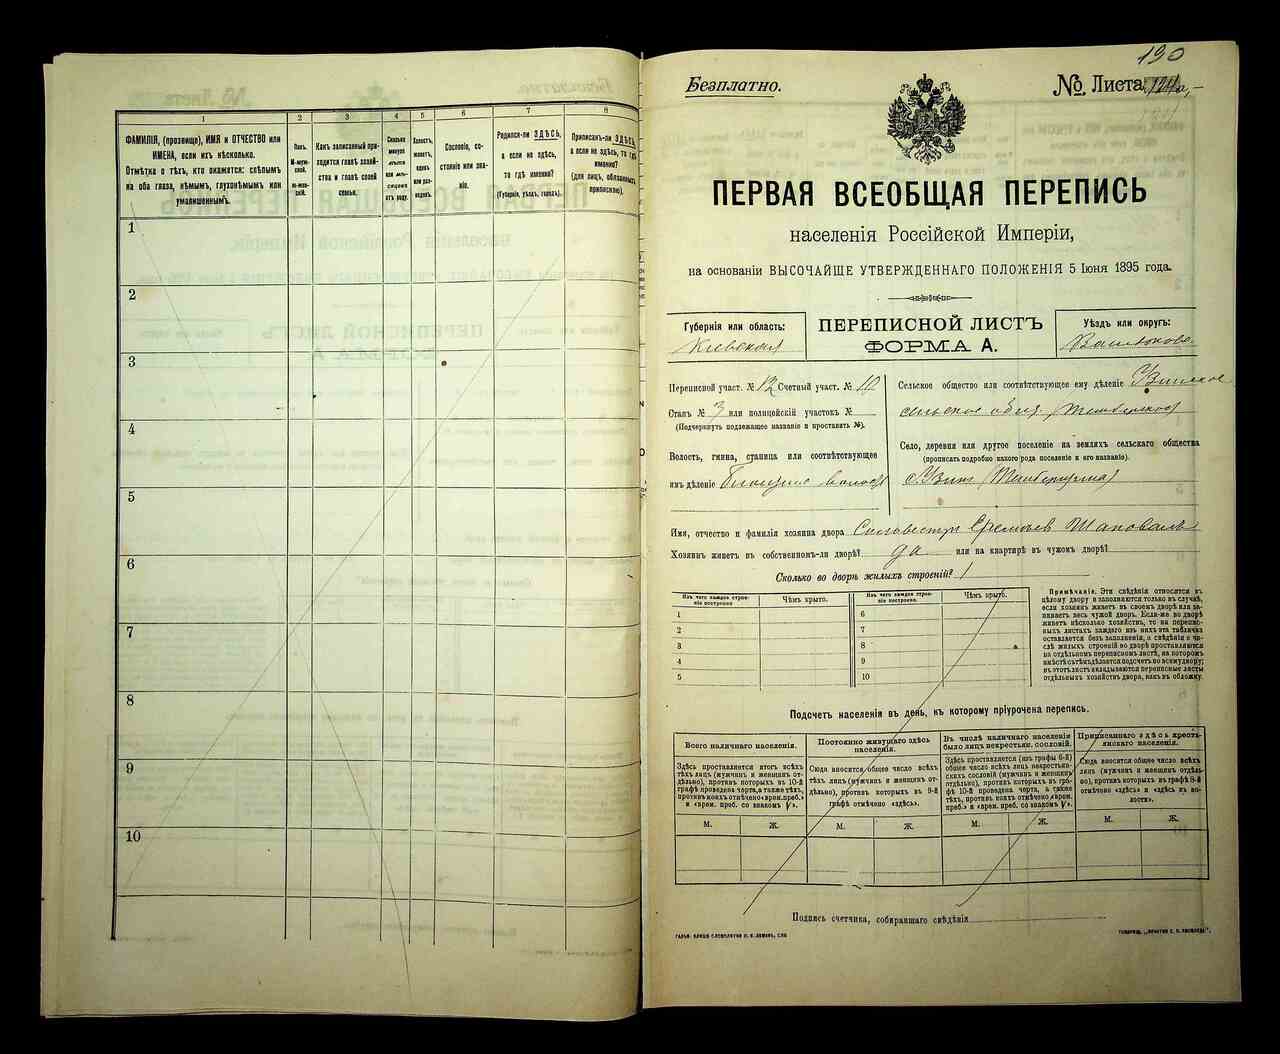 1
2
3
4
5
6
7
8
ФАМИЛІЯ, (прозвище), ИМЯ и ОТЧЕСТВО или
ИМЕНА, если ихъ нѣсколько.
Отмѣтка о тѣхъ, кто окажется: слѣпымъ
на оба глаза, нѣмымъ, глухонѣмымъ или
умалишеннымъ.
Полъ.
М-муж-
ской.
Ж-жен-
скій.
Какъ записанный при-
ходится главѣ хозяй-
ства и главѣ своей
семьи.
Сколько
минуло
лѣтъ
или мѣ-
сяцевъ
отъ роду.
Холостъ,
женатъ,
вдовъ
или раз-
веденъ.
Сословіе, со-
стояніе или зва-
ніе.
Родился-ли ЗДѢСЬ,
а если не здѣсь,
то гдѣ именно?
(Губернія, уѣздъ, городъ).
Приписанъ-ли ЗДѢСЬ,
а если не здѣсь, то гдѣ
именно?
(для лицъ, обязанныхъ
припискою).
1
2
3
4
5
6
7
8
9
10
190
Безплатно.
№ Листа
ПЕРВАЯ ВСЕОБЩАЯ ПЕРЕПИСЬ
населенія Россійской Имперіи,
на основаніи ВЫСОЧАЙШЕ УТВЕРЖДЕННАГО ПОЛОЖЕНІЯ 5 Іюня 1895 года.
Губернія или область:
Кіевская
ПЕРЕПИСНОЙ ЛИСТЪ
ФОРМА А.
Уѣздъ или округъ:
Васильков.
Переписной участ. № 12 Счетный участ. № 10
Станъ № 3 или полицейскій участокъ №
(Подчеркнуть подлежащее названіе и проставить №).
Волость, гмина, станица или соотвѣтствующее
имъ дѣленіе
Сельское общество или соотвѣтствующее ему дѣленіе Узинское
сельское общ.
Село, деревня или другое поселеніе на земляхъ сельскаго общества
(прописать подробно какого рода поселеніе и его названіе).
с. Узин
Имя, отчество и фамилія хозяина двора Сильвестръ Еремѣевъ Шаповалъ
Хозяинъ живетъ въ собственномъ-ли дворѣ? да или на квартирѣ въ чужомъ дворѣ?
Сколько во дворѣ жилыхъ строеній? 1
Изъ чего каждое строе-
ніе построено
Чѣмъ крыто.
Изъ чего каждое строе-
ніе построено.
Чѣмъ крыто.
1
2
3
4
5
6
7
8
9
10
Примѣчаніе. Эти свѣдѣнія относятся къ
цѣлому двору и заполняются только въ случаѣ,
если хозяинъ живетъ въ своемъ дворѣ или за-
нимаетъ весь чужой дворъ. Если-же во дворѣ
живетъ нѣсколько хозяйствъ, то на перепис-
ныхъ листахъ каждаго изъ нихъ эта табличка
оставляется безъ заполненія, а свѣдѣнія о чи-
слѣ жилыхъ строеній во дворѣ проставляются
на отдѣльномъ переписномъ листѣ, на которомъ
вмѣстѣ съ тѣмъ дѣлается подсчетъ по всему двору;
въ этотъ листъ вкладываются переписные листы
отдѣльныхъ хозяйствъ двора, какъ въ обложку.
Подсчетъ населенія въ день, къ которому пріурочена перепись.
Всего наличнаго населенія.
Здѣсь проставляется итогъ всѣхъ
тѣхъ лицъ (мужчинъ и женщинъ от-
дѣльно), противъ которыхъ въ 10-й
графѣ проведена черта, а также тѣхъ,
противъ коихъ отмѣчено «врем. преб.»
и «врем. преб. со знакомъ V».
Постоянно живущаго здѣсь
населенія.
Сюда вносится общее число всѣхъ
тѣхъ лицъ (мужчинъ и женщинъ от-
дѣльно), противъ которыхъ въ 9-й
графѣ отмѣчено «здѣсь».
Въ числѣ наличнаго населенія
было лицъ некрестьян. сословій.
Здѣсь проставляется (изъ графы 6-й)
общее число всѣхъ лицъ некрестьян-
скихъ сословій (мужчинъ и женщинъ
отдѣльно), противъ которыхъ въ гра-
фѣ 10-й проведена черта, а также
тѣхъ, противъ коихъ отмѣчено «врем.
преб.» и «врем. преб. со знакомъ V».
Приписаннаго здѣсь кресть-
янскаго населенія.
Сюда вносится общее число всѣхъ
лицъ (мужчинъ и женщинъ отдѣль-
но), противъ которыхъ въ графѣ 8-й
отмѣчено «здѣсь» и «здѣсь въ во-
лости».
М.
Ж.
М.
Ж.
М.
Ж.
М.
Ж.
Подпись счетчика, собиравшаго свѣдѣнія